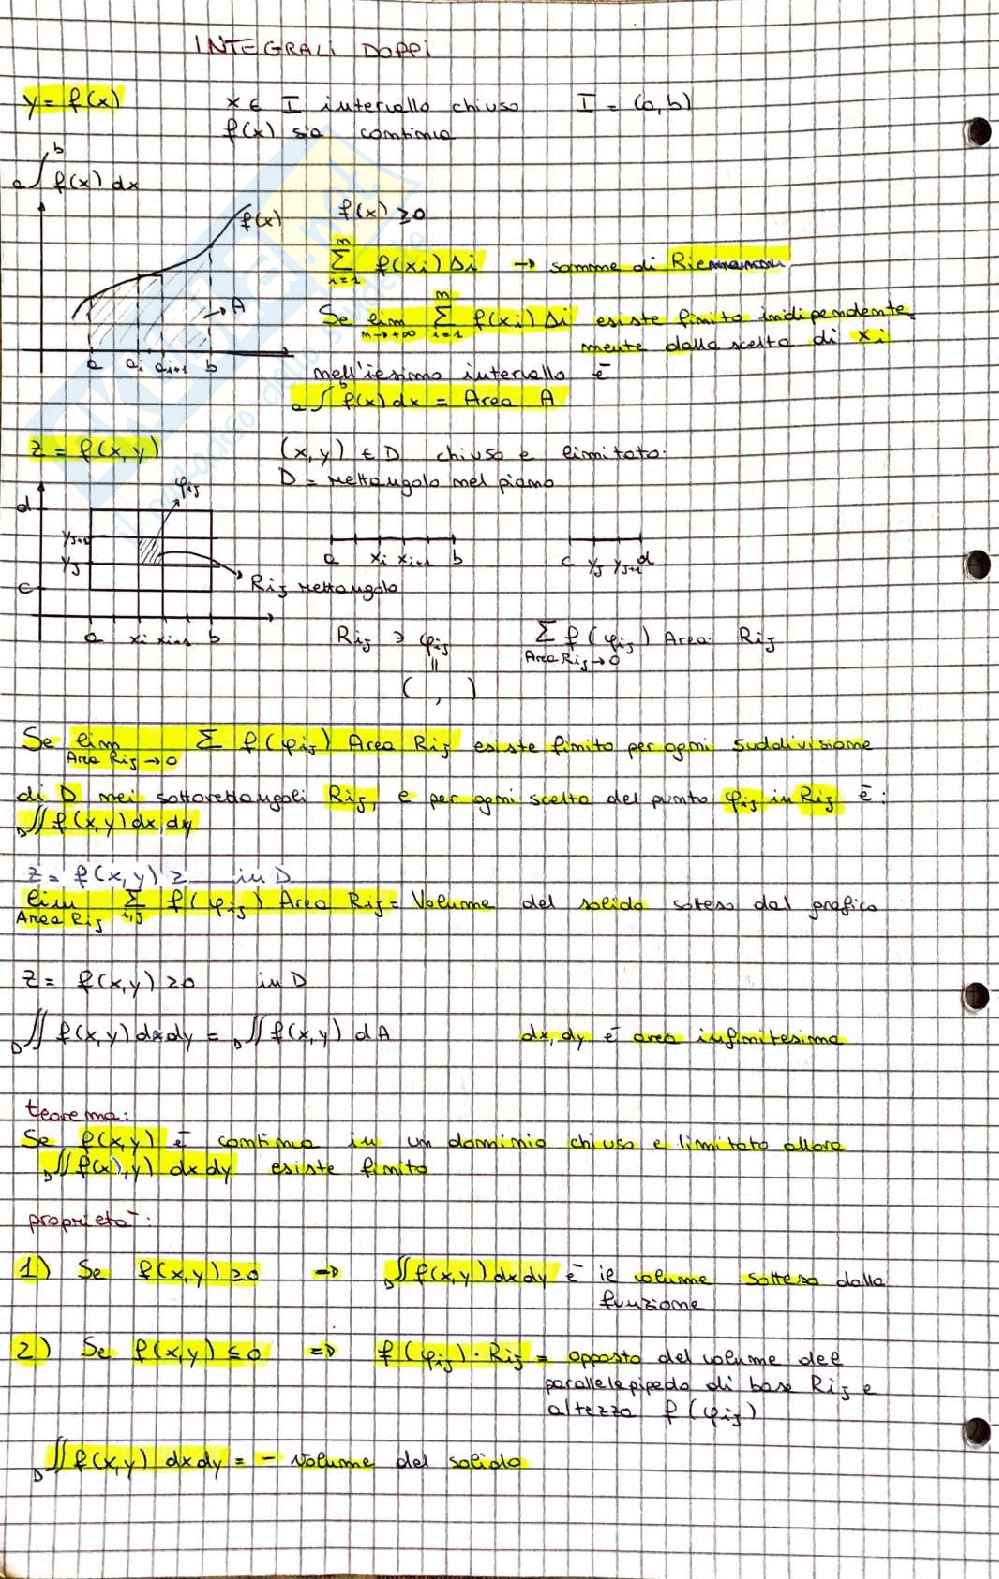 INTEGRALI DOPPI
y = f(x) x ∈ I intervallo chiuso I = (a,b)
f(x) sia continua
a∫b f(x) dx
f(x) f(x) ≥ 0
n∑i=1 f(xi) Δi → somme di Riemann
A
Se lim n→+∞ n∑i=1 f(xi) Δi esiste finito indipendente
mente dalla scelta di xi
a ai ai+1 b
nell'iesimo intervallo è
a∫b f(x) dx = Area A
z = f(x,y) (x,y) ∈ D chiuso e limitato.
D = rettangolo nel piano
φij
d
yj+1
yj
c
a xi xi+1 b
c yj yj+1 d
Rij rettangolo
a xi xi+1 b
Rij ∋ φij ∑ f(φij) Area Rij
Area Rij → 0
=
( , )
Se lim ∑ f(φij) Area Rij esiste finito per ogni suddivisione
Area Rij → 0
di D nei sottorettangoli Rij, e per ogni scelta del punto φij in Rij è:
D∬ f(x,y) dx,dy
z = f(x,y) ≥ in D
lim ∑i,j f(φij) Area Rij = Volume del solido soteso dal grafico
Area Rij
z = f(x,y) ≥ 0 in D
D∬ f(x,y) dxdy = D∬ f(x,y) dA dx,dy è area infinitesima
teorema:
Se f(x,y) è continua in un dominio chiuso e limitato allora
D∬ f(x),y) dxdy esiste finito
proprietà:
1) Se f(x,y) ≥ 0 ⇒ D∬ f(x,y) dxdy è il volume sotteso dalla
funzione
2) Se f(x,y) ≤ 0 ⇒ f(φij) · Rij = opposto del volume del
parallelepipedo di base Rij e
altezza f(φij)
D∬ f(x,y) dxdy = - volume del solido